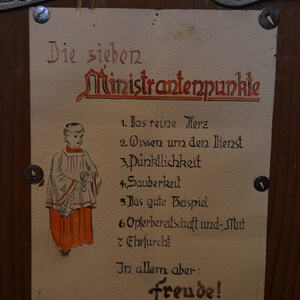 Die sieben
Ministrantenpunkte
1. Das reine Herz
2. Wissen um den Dienst
3. Pünktlichkeit
4. Sauberkeit
5. Das gute Beispiel
6. Opferbereitschaft und -Mut
7. Ehrfurcht
In allem aber:
Freude!